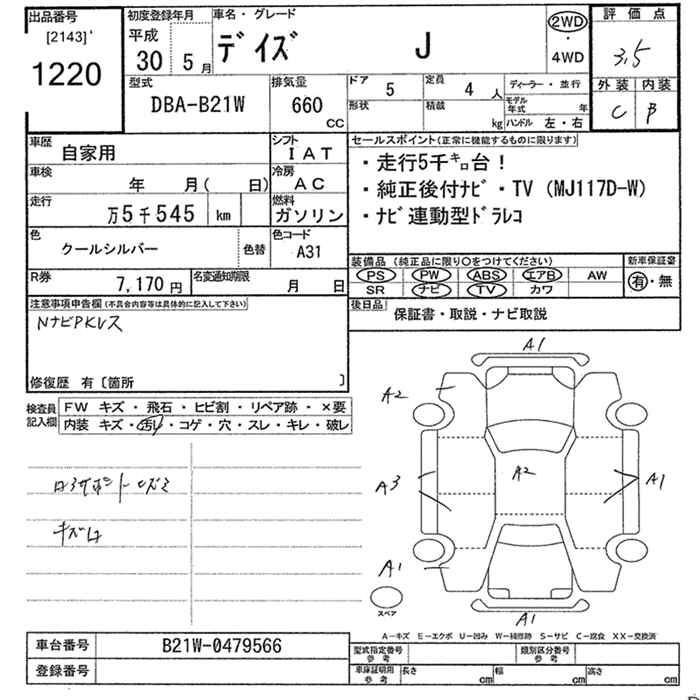 出品番号
[2143]
1220
初度登録年月
平成
30 5月
車名・グレード
デイズ J
2WD
・
4WD
評価点
3.5
外装 内装
C B
型式
DBA-B21W
排気量
660 CC
ドア 5
定員 4 人
形状
積載 kg
ディーラー・並行
モデル年式 年
ハンドル 左・右
車歴
自家用
シフト
IAT
車検
年 月( 日)
冷房
AC
走行
万5千545 km
燃料
ガソリン
色
クールシルバー
色替
色コード
A31
R券
7,170円
名変通知期限
月 日
セールスポイント(正常に機能するものに限ります)
・走行5千㌔台!
・純正後付ナビ・TV (MJ117D-W)
・ナビ連動型ドラレコ
装備品 (純正品に限り○をつけてください)
PS PW ABS エアB AW
SR ナビ TV カワ
新車保証書
有・無
後日品
保証書・取説・ナビ取説
注意事項申告欄(不具合内容等は具体的に記入して下さい)
NナビPKレス
修復歴 有〔箇所 〕
検査員記入欄
FW キズ・飛石・ヒビ割・リペア跡・×要
内装 キズ・汚レ・コゲ・穴・スレ・キレ・破レ
A1
A2
A2
A3
A1
A1
A1
スペア
A-キズ E-エクボ U-凹み W-補修跡 S-サビ C-腐食 XX-交換済
車台番号
B21W-0479566
登録番号
型式指定番号
参考
類別区分番号
参考
車庫証明用
参考
長さ cm
幅 cm
高さ cm